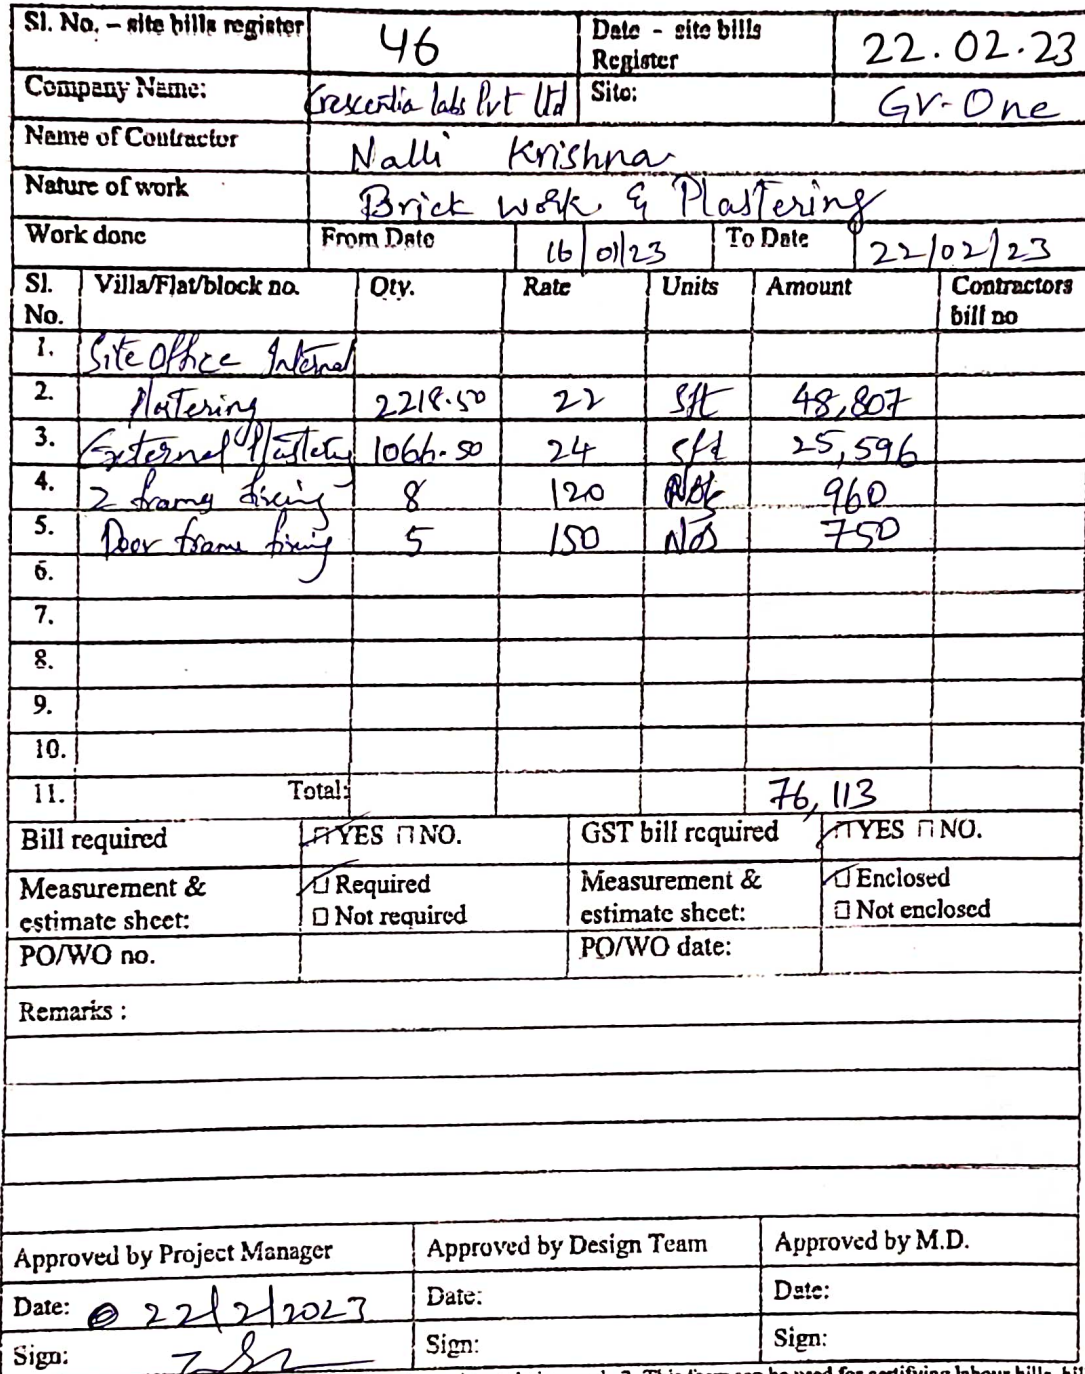 Sl. No. – site bills register 46 Date - site bills Register 22.02.23
Company Name: Crescentia labs Pvt Ltd Site: GV-One
Name of Contractor Nalli Krishna
Nature of work Brick work & Plastering
Work done From Date 16/01/23 To Date 22/02/23
Sl. No. Villa/Flat/block no. Qty. Rate Units Amount Contractors bill no
1. Site Office Internal
2. Plastering 2218.50 22 Sft 48,807
3. External Plastering 1066.50 24 sft 25,596
4. 2 frames fixing 8 120 960
5. Door frame fixing 5 150 Nos 750
6.
7.
8.
9.
10.
11. Total: 76,113
Bill required ☐ YES ☐ NO. GST bill required ☐ YES ☐ NO.
Measurement & estimate sheet: ☐ Required ☐ Not required Measurement & estimate sheet: ☐ Enclosed ☐ Not enclosed
PO/WO no. PO/WO date:
Remarks :
Approved by Project Manager Approved by Design Team Approved by M.D.
Date: 22/2/2023 Date: Date:
Sign: Sign: Sign:
This form can be used for certifying labour bills,